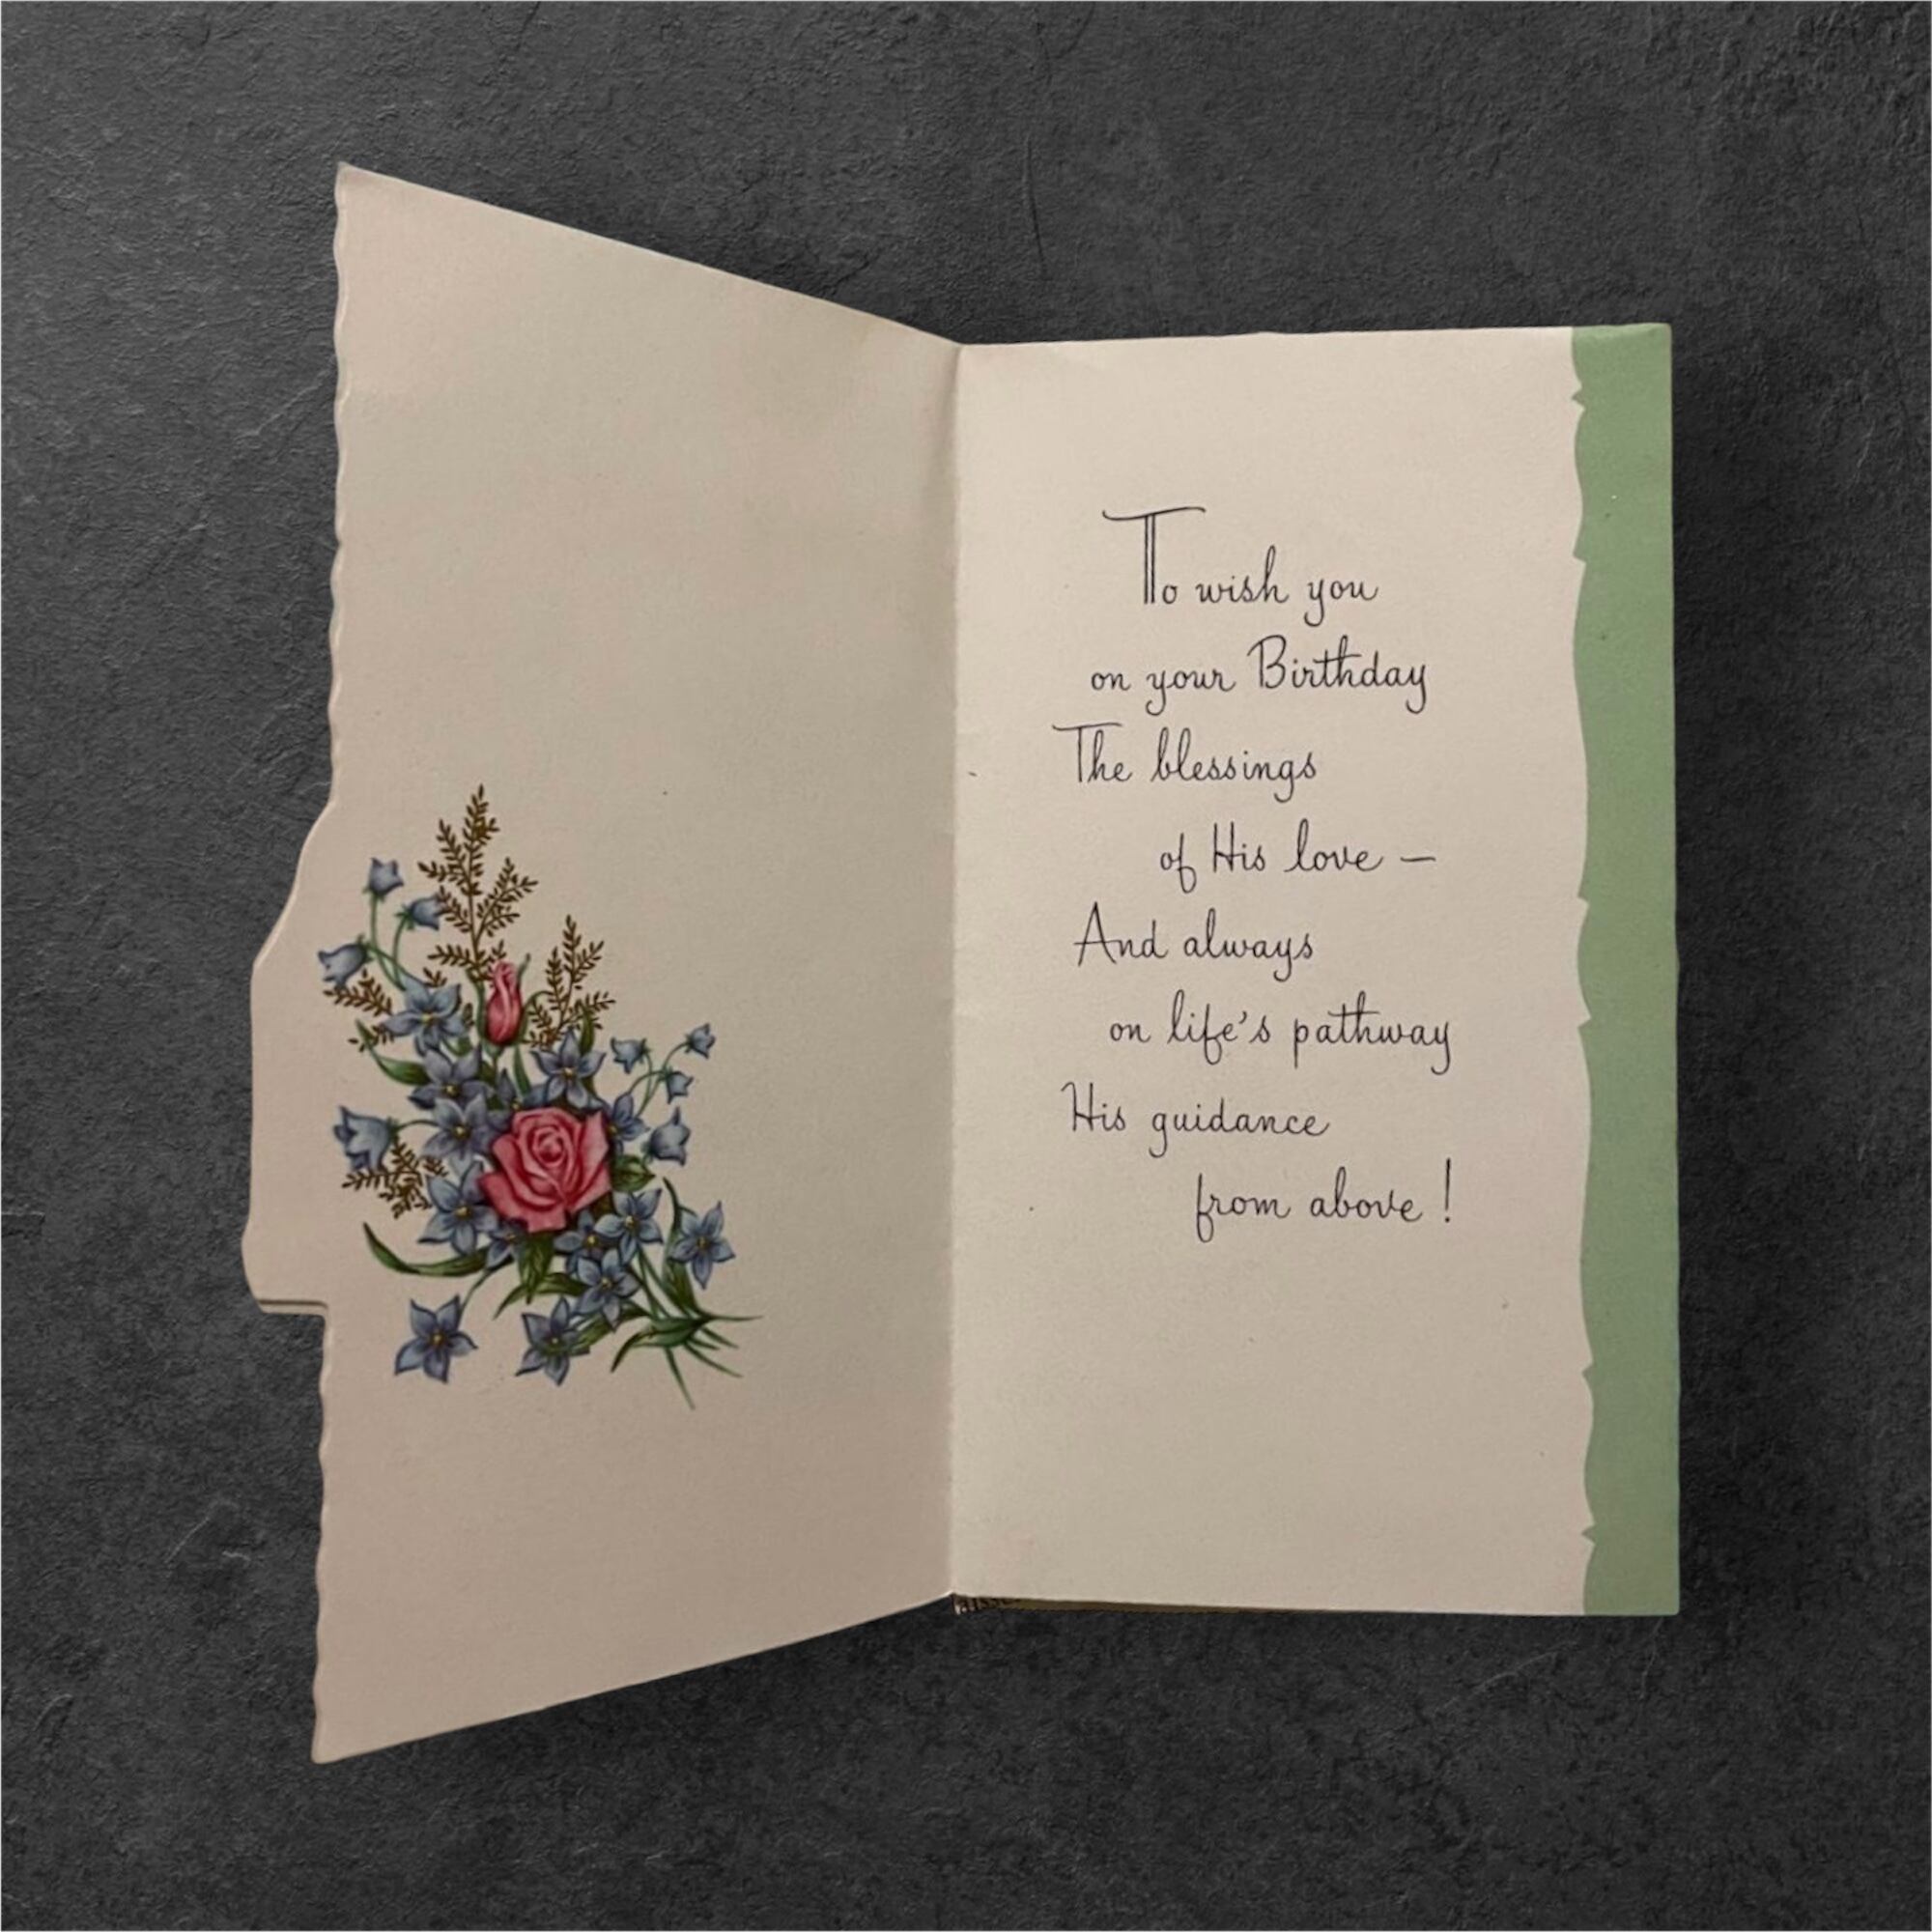 To wish you
on your Birthday
The blessings
of His love —
And always
on life's pathway
His guidance
from above!